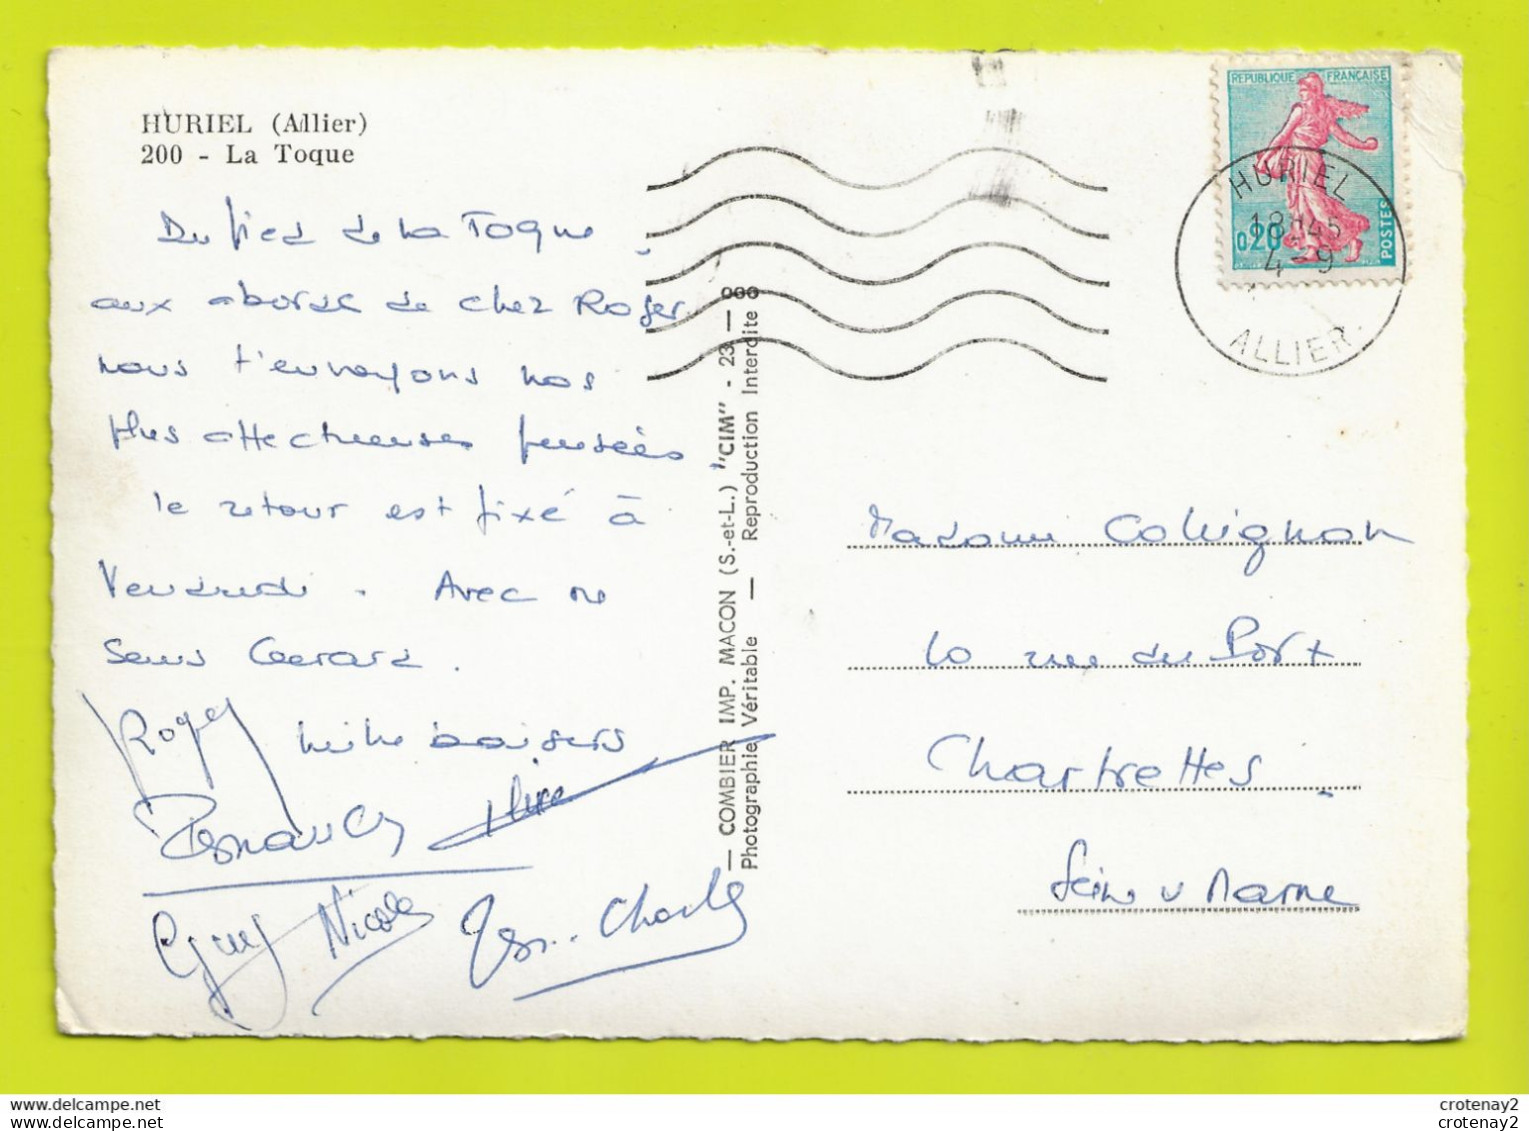 HURIEL (Allier)
200 - La Toque
Du pied de la Toque
aux abords de chez Roger
nous t'envoyons nos
plus affectueuses pensées
le retour est fixé à
Vendredi. Avec ou
sans Gerard.
Roger mille baisers
Guy Nicole Charles
— COMBIER IMP. MACON (S.-et-L.) "CIM" - 23 — 000
Photographie Véritable — Reproduction Interdite
REPUBLIQUE FRANÇAISE
0,20
POSTES
HURIEL
18H45
4-9
ALLIER
Madame Collignon
10 rue du Port
Chartrettes
Seine & Marne
crotenay2
crotenay2
crotenay2
crotenay2